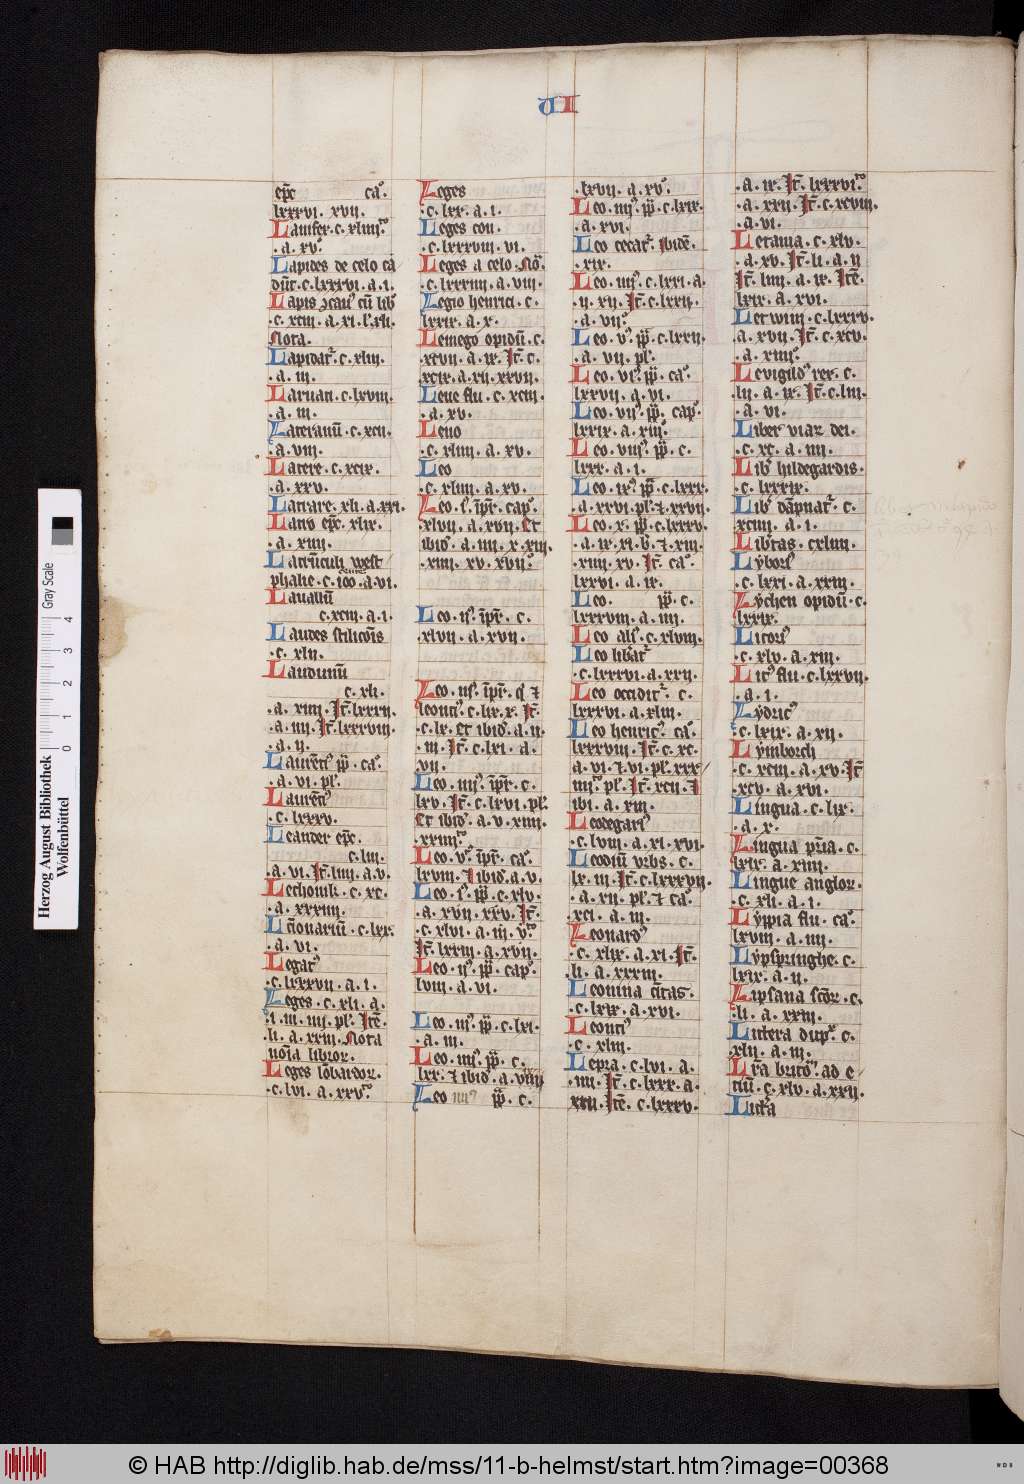 VI
ep̄c ca°.
lxxxvi. xvii.
Lanifer. c. xliiii.
.a. xv°.
Lapides de celo ca
dūt. c. lxxxvi. a. i.
Lapis
.c. xciii. a. xi.
Nota.
Lapidat'. c. xliii.
.a. iii.
Laruati. c. lxviii.
.a. iii.
Lateranū. c. xcii.
.a. viii.
Latere. c. xcix.
.a. xxv.
Latrare. xli. a. xxi.
Latro ep̄c. xlix.
.a. xiiii.
Latrūculi west
phalie. c. ioo. a. vi.
Lauallū
c. xciii. a. i.
Laudes stiliconis
.c. xlii.
Laudunū
c. xli.
.a. xiiii. It̄. lxxxii.
.a. iii. It̄. lxxxviii.
.a. ii.
Laurēt' pp̄. ca°.
.a. vi. pl'.
Laurēt'
.c. lxxxv.
Leander ep̄c.
c. liii.
.a. vi. It̄. liiii. a. v.
Lechonik. c. xc.
.a. xxxiii.
Lctionariū. c. lxx.
.a. vi.
Legat'
.c. lxxxvii. a. i.
Leges. c. xli. a.
.i. iii. iiij. pl'. Itē.
.li. a. xxiii. Nota
noīa libror.
Leges lōbardor.
.c. lvi. a. xxv.
Leges
.c. lxx. a. i.
Leges con.
.c. lxxxviii. vi.
Leges a celo. No.
.c. lxxxiiii. a. viii.
Legio henrici. c.
lxxix. a. x.
Lemego opidū. c.
xcvii. a. ix. It̄. c.
xcix. a. xii. xxvii.
Lene flu. c. xciii.
.a. xv.
Leno
.c. xliiii. a. xv.
Leo
.c. xliiii. a. xv.
Leo. i'. īpr̄. cap°.
xlvii. a. xvii. Et
ibid'. a. iiii. x. xiii.
.xiiii. xv. xvii.
Leo. ii'. īpr̄. c.
xlvii. a. xvii.
Leo. iii'. īpr̄. q̄ &
leonci'. c. lix. x. It̄.
.c. lx. Et ibid'. a. ii.
.iii. It̄. c. lxi. a.
vii.
Leo. iiii'. īpr̄. c.
lxv. It̄. c. lxvi. pl'.
Et ibid'. a. v. xiiii.
.xxiiii.
Leo. v'. īpr̄. ca°.
lxviii. & ibid'. a. v.
Leo. i'. pp̄. c. xlv.
.a. xvii. xxv. It̄.
.c. xlvi. a. iii. v.
It̄. lxxiii. a. xvii.
Leo. ii'. pp̄. cap°.
lviii. a. vi.
Leo. iii'. pp̄. c. lxi.
.a. iii.
Leo. iiii'. pp̄. c.
lxx. & ibid'. a. viiii
Leo iiii° pp̄. c.
.lxvii. a. xv°.
Leo. iiij'. pp̄. c. lxix.
.a. xvi.
Leo cecat'. ibidē.
.xix.
Leo. iiii'. c. lxxi. a.
.ii. xii. It̄. c. lxxii.
.a. vii°.
Leo. v'. pp̄. c. lxxii.
.a. vii. pl'.
Leo. vi'. pp̄. ca°.
lxxvii. a. vi.
Leo. vii'. pp̄. cap°.
lxxix. a. xiii°.
Leo. viii'. pp̄. c.
lxxx. a. i.
Leo. ix'. pp̄. c. lxxx.
.a. xxvi. pl'. & xxvii.
Leo. x. pp̄. c. lxxxv.
.a. ix. xi. b. & xiii.
.xiiii. xv. It̄. ca°.
lxxvi. a. ix.
Leo. pp̄. c.
lxxxviii. a. iiii.
Leo als'. c. xlviii.
Leo libat'
.c. lxxxvi. a. xxii.
Leo occidit'. c.
lxxxvi. a. xliii.
Leo henric'. ca°.
lxxxviii. It̄. c. xc.
a. vi. & vi. pl'. xxx
iiii. pl'. It̄. xcii. &
ibi. a. xiii.
Leodegari'
.c. lviii. a. xi. xvi.
Leodiū vrbs. c.
lx. iii. It̄. c. lxxxvii.
.a. xii. pl'. & ca°.
xci. a. iii.
Leonard'
.c. xlix. a. xi. It̄.
.li. a. xxxiii.
Leonina ciitas.
.c. lxix. a. xvi.
Leonci'
.c. xliii.
Lepra. c. lvi. a.
.iiii. It̄. c. lxxx. a.
xxii. Itē. c. lxxxv.
.a. ix. It̄. lxxxvi.
.a. xxii. It̄. c. xcviii.
.a. vi.
Letania. c. xlv.
.a. xv. It̄. li. a. ii
It̄. liiii. a. ix. Itē.
lxix. a. xvi.
Letwin. c. lxxxv.
.a. xvii. It̄. c. xcv.
.a. xiiii°.
Levigild' rex. c.
lii. a. ix. It̄. c. liii.
.a. vi.
Liber viar dei.
.c. xc. a. iiii.
Lib' hildegardis.
.c. lxxxix.
Lib' dāpnat'. c.
xciiii. a. i.
Libras. cxliiii.
Lybors'
.c. lxxi. a. xxiii.
Lychen opidū. c.
lxxix.
Licors'
.c. xlv. a. xiii.
Lic' flu. c. lxxvii.
.a. i.
Lydric'
.c. lxix. a. xii.
Lymborch
.c. xciii. a. xv. It̄
.xcv. a. xvi.
Lingua. c. lix.
.a. x.
Lingua p̄ria. c.
lxix. a. xiiii.
Lingue anglor.
.c. xlii. a. i.
Lyppia flu. ca°.
lxviii. a. iiii.
Lypspringhe. c.
lxix. a. ii.
Lipsana scōr. c.
.li. a. xxiii.
Littera dup'. c.
xlii. a. iii.
Lr̄a brito'. ad e
ciū. c. xlv. a. xxii.
Litt'a
Herzog August Bibliothek
Wolfenbüttel
Gray Scale
0 1 2 3 4
© HAB http://diglib.hab.de/mss/11-b-helmst/start.htm?image=00368